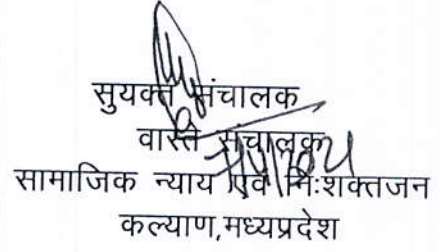 सुयक्त संचालक
वास्ते संचालक
सामाजिक न्याय एवं निःशक्तजन
कल्याण,मध्यप्रदेश